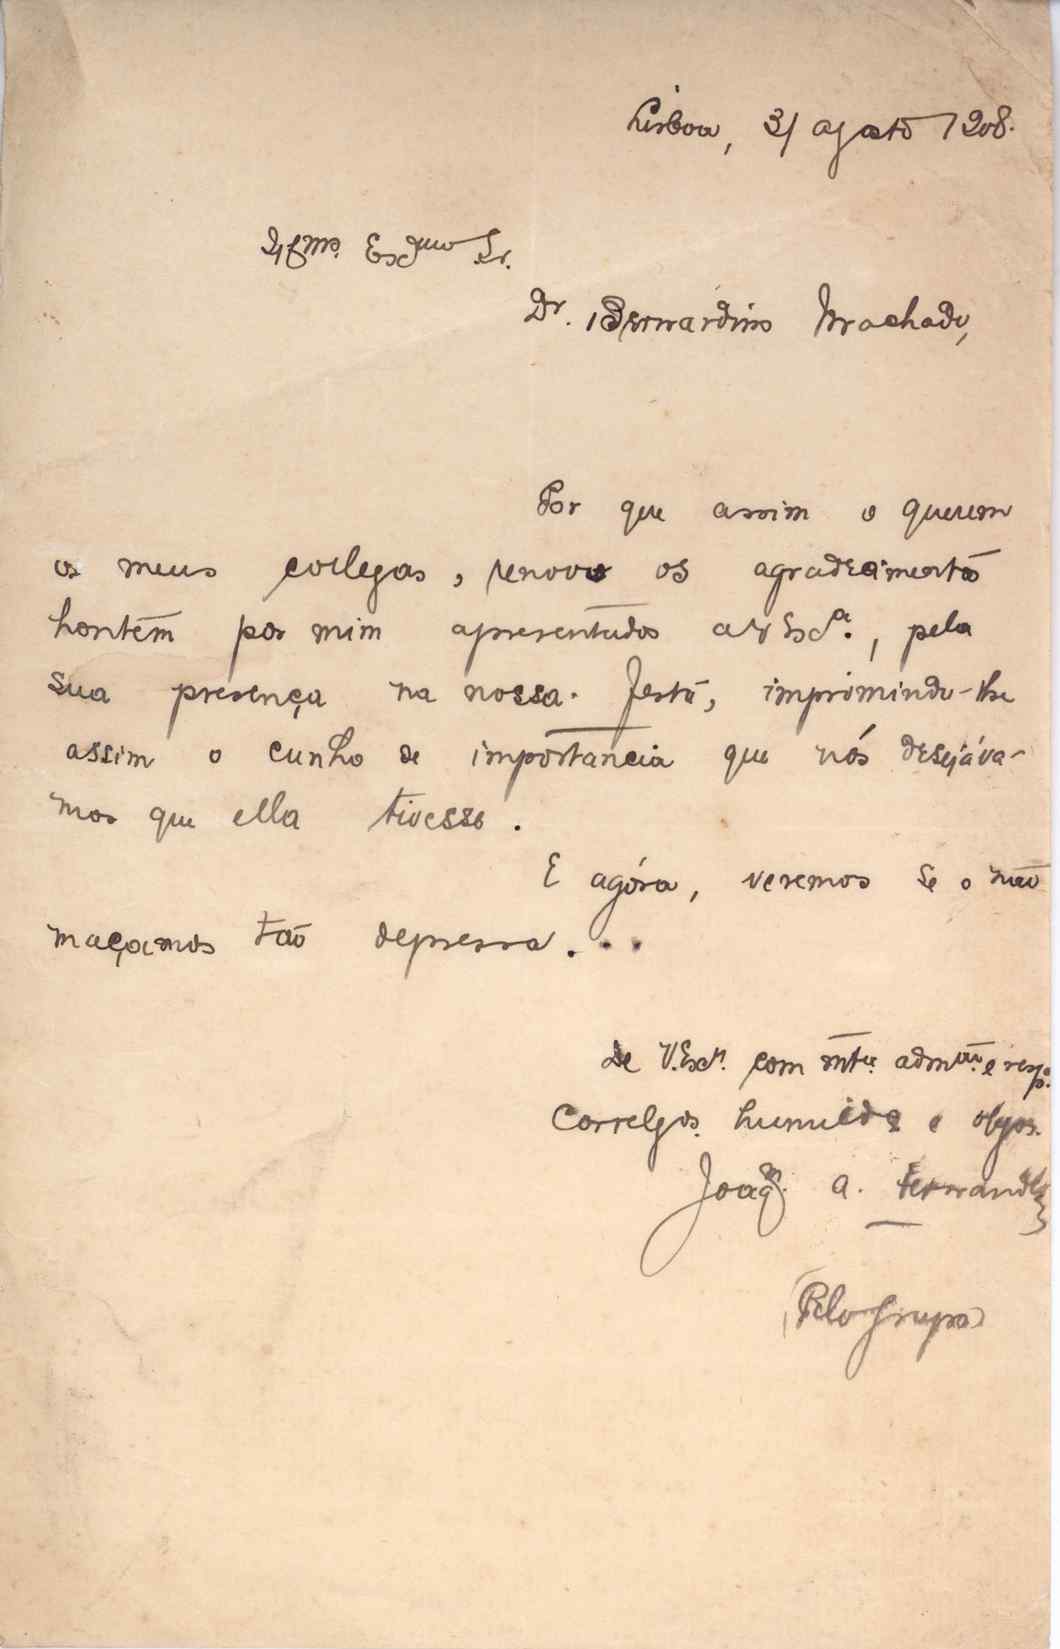 Lisboa, 31 agosto 1908.
Illmo. Exmo Sr.
Dr. Bernardino Machado,
Por que assim o querem
os meus collegas, renovo os agradecimentos
hontêm por mim apresentados a V. Exa., pela
sua presença na nossa festa, imprimindo-lhe
assim o cunho de importancia que nós desejáva-
mos que ella tivesse.
E agóra, veremos se o não
maçamos tão depressa...
De V. Exa. com mta. admção. e resp.
Correlgos. humilde e obgos.
Joaqm. A. Fernandes
(Pelo Grupo)